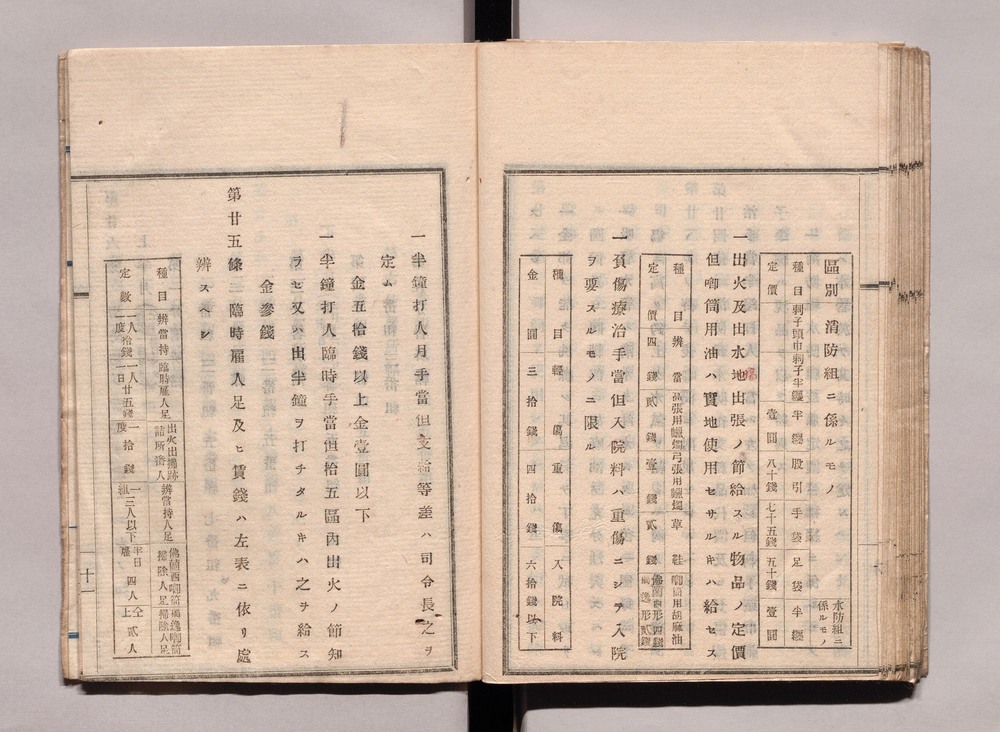 區別 消防組ニ係ルモノ 水防組ニ係ルモノ
種目 刺子頭巾 刺子半纏 半纏 股引 手袋 足袋 半纏
定價 壹圓 八十錢 七十五錢 五十錢 壹圓
一出火及出水地出張ノ節給スル物品ノ定價
但喞筒用油ハ實地使用セサルキハ給セス
種目 辨當 高張用蠟燭 弓張用蠟燭 草鞋 喞筒用胡麻油
定價 四錢 貳錢 壹錢 貳錢 佛蘭西形四錢 獨逸形貳錢
一負傷療治手當但入院料ハ重傷ニシテ入院
ヲ要スルモノニ限ル
種目 輕傷 重傷 入院料
金圓 三拾錢 四拾錢 六拾錢以下
一半鐘打人月手當但支給等差ハ司令長之ヲ
定ム
金五拾錢以上金壹圓以下
一半鐘打人臨時手當但拾五區內出火ノ節知
ラセ又ハ出半鐘ヲ打チタルキハ之ヲ給ス
金參錢
第廿五條 臨時雇人足及ヒ賃錢ハ左表ニ依リ處
辨スヘシ
種目 辨當持 臨時雇人足 出火出揚跡詰所番人 辨當持人足 佛蘭西喞筒掃除人足 獨逸喞筒掃除人足
定數 一人一度拾錢 一人一日廿五錢 一度拾錢 一組三人以下 半日雇四人 仝上貳人
十一